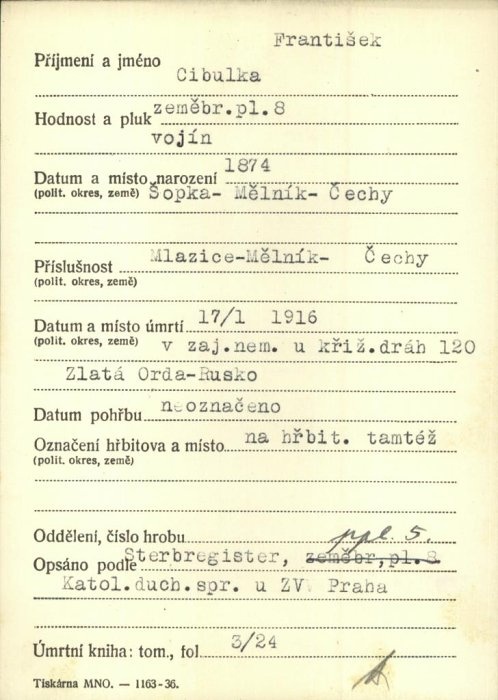 František
Příjmení a jméno
Cibulka
Hodnost a pluk zeměbr.pl.8
vojín
Datum a místo narození 1874
(polit. okres, země) Šopka- Mělník- Čechy
Příslušnost Mlazice-Mělník- Čechy
(polit. okres, země)
Datum a místo úmrtí 17/1 1916
(polit. okres, země) v zaj.nem. u křiž.dráh 120
Zlatá Orda-Rusko
Datum pohřbu neoznačeno
Označení hřbitova a místo na hřbit. tamtéž
(polit. okres, země)
Oddělení, číslo hrobu ppl. 5.
Opsáno podle Sterbregister, zeměbr,pl.8
Katol.duch.spr. u ZV. Praha
Úmrtní kniha: tom., fol. 3/24
Tiskárna MNO. — 1163-36.